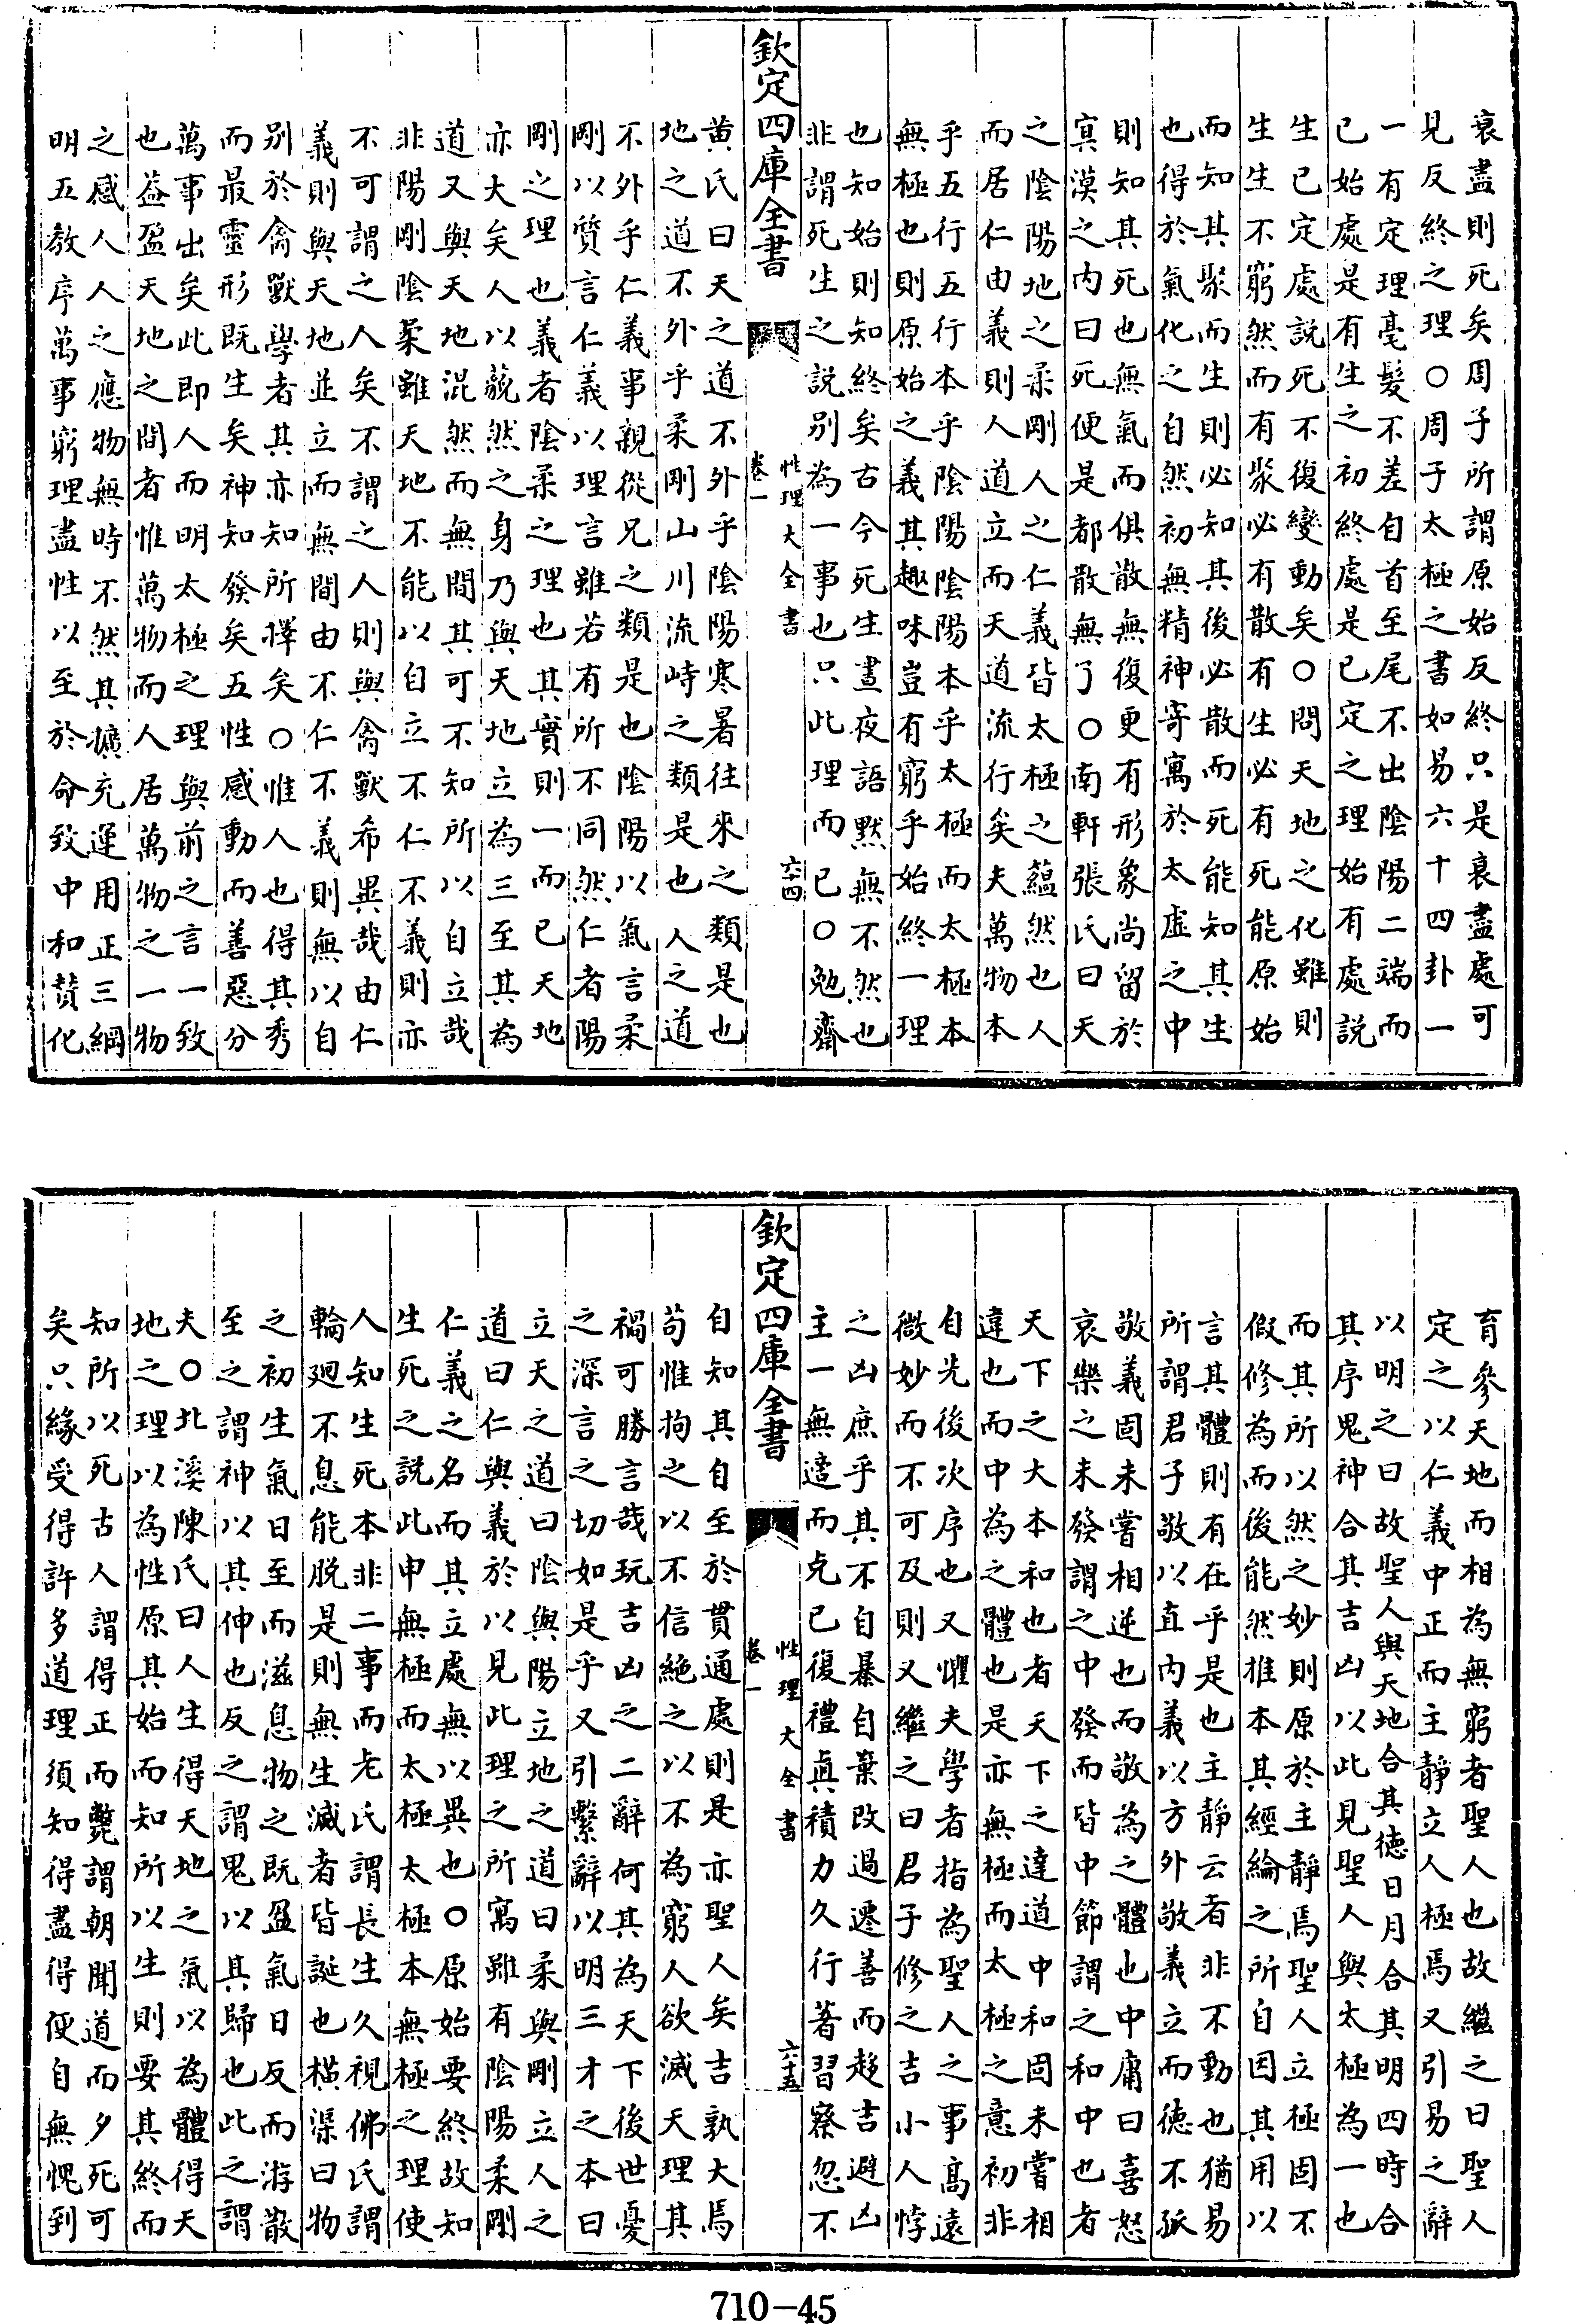 衰盡則死矣周子所謂原始反終只是衰盡處可
見反終之理○周子太極之書如易六十四卦一
一有定理毫髮不差自首至尾不出陰陽二端而
已始處是有生之初終處是已定之理始有處說
生已定處説死不復變動矣○問天地之化雖則
生生不窮然而有聚必有散有生必有死能原始
而知其聚而生則必知其後必散而死能知其生
也得於氣化之自然初無精神寄寓於太虛之中
則知其死也無氣而俱散無復更有形象尚留於
㝠漠之内曰死便是都散無了○南軒張氏曰天
之陰陽地之柔剛人之仁義皆太極之蘊然也人
而居仁由義則人道立而天道流行矣夫萬物本
乎五行五行本乎陰陽陰陽本乎太極而太極本
無極也則原始之義其趣味豈有窮乎始終一理
也知始則知終矣古今死生晝夜語默無不然也
非謂死生之説别為一事也只此理而已○勉齋
欽定四庫全書
性理大全書
卷一
六十四
黄氏曰天之道不外乎陰陽寒暑往來之類是也
地之道不外乎柔剛山川流峙之類是也人之道
不外乎仁義事親從兄之類是也陰陽以氣言柔
剛以質言仁義以理言雖若有所不同然仁者陽
剛之理也義者陰柔之理也其實則一而已天地
亦大矣人以藐然之身乃與天地立為三至其為
道又與天地混然而無間其可不知所以自立哉
非陽剛陰柔雖天地不能以自立不仁不義則亦
不可謂之人矣不謂之人則與禽獸希異哉由仁
義則與天地並立而無間由不仁不義則無以自
别於禽獸學者其亦知所擇矣○惟人也得其秀
而最靈形既生矣神知發矣五性感動而善惡分
萬事出矣此即人而明太極之理與前之言一致
也葢盈天地之間者惟萬物而人居萬物之一物
之感人人之應物無時不然其擴充運用正三綱
明五教序萬事窮理盡性以至於命致中和賛化
育參天地而相為無窮者聖人也故繼之曰聖人
定之以仁義中正而主靜立人極焉又引易之辭
以明之曰故聖人與天地合其德日月合其明四時合
其序鬼神合其吉凶以此見聖人與太極為一也
而其所以然之妙則原於主靜焉聖人立極固不
假修為而後能然推本其經綸之所自因其用以
言其體則有在乎是也主靜云者非不動也猶易
所謂君子敬以直内義以方外敬義立而德不孤
敬義固未嘗相逆也而敬為之體也中庸曰喜怒
哀樂之未發謂之中發而皆中節謂之和中也者
天下之大本和也者天下之達道中和固未嘗相
違也而中為之體也是亦無極而太極之意初非
自先後次序也又懼夫學者指為聖人之事髙遠
微妙而不可及則又繼之曰君子修之吉小人悖
之凶庶乎其不自暴自棄改過遷善而趍吉避凶
主一無適而克已復禮真積力久行著習察忽不
欽定四庫全書
性理大全書
卷一
六十五
自知其自至於貫通處則是亦聖人矣吉孰大焉
苟惟拘之以不信絶之以不為窮人欲滅天理其
禍可勝言哉玩吉凶之二辭何其為天下後世憂
之深言之切如是乎又引繫辭以明三才之本曰
立天之道曰陰與陽立地之道曰柔與剛立人之
道曰仁與義於以見此理之所寓雖有陰陽柔剛
仁義之名而其立處無以異也○原始要終故知
生死之説此申無極而太極太極本無極之理使
人知生死本非二事而老氏謂長生久視佛氏謂
輪廻不息能脱是則無生滅者皆誕也橫渠曰物
之初生氣日至而滋息物之既盈氣日反而游散
至之謂神以其伸也反之謂鬼以其歸也此之謂
夫○北溪陳氏曰人生得天地之氣以為體得天
地之理以為性原其始而知所以生則要其終而
知所以死古人謂得正而斃謂朝聞道而夕死可
矣只緣受得許多道理須知得盡得便自無愧到
710-45